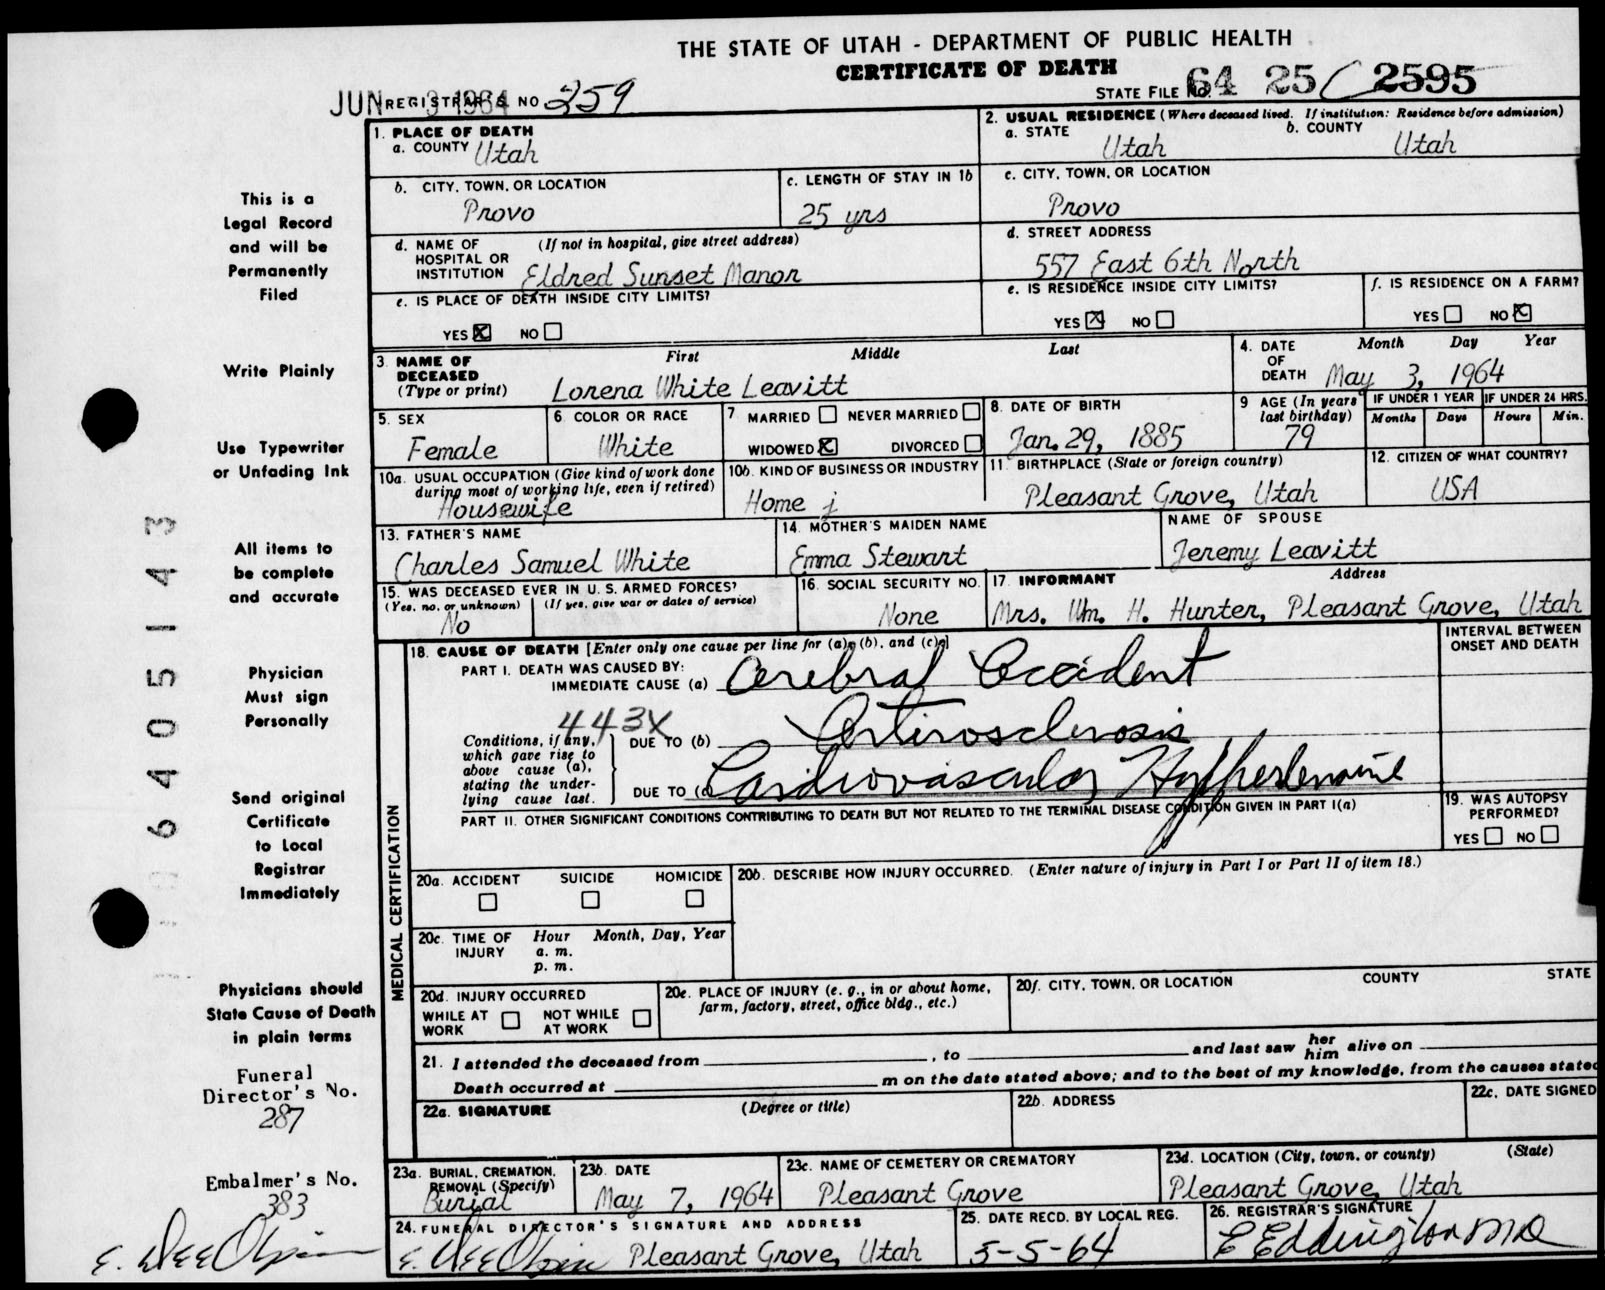 THE STATE OF UTAH - DEPARTMENT OF PUBLIC HEALTH
CERTIFICATE OF DEATH
JUN - 3 1964 REGISTRAR'S NO 259
STATE FILE NO. 64 25 2595
1. PLACE OF DEATH
a. COUNTY Utah
2. USUAL RESIDENCE (Where deceased lived. If institution: Residence before admission)
a. STATE Utah b. COUNTY Utah
b. CITY, TOWN, OR LOCATION Provo
c. LENGTH OF STAY IN 1b 25 yrs
c. CITY, TOWN, OR LOCATION Provo
d. NAME OF HOSPITAL OR INSTITUTION (If not in hospital, give street address) Eldred Sunset Manor
d. STREET ADDRESS 557 East 6th North
e. IS PLACE OF DEATH INSIDE CITY LIMITS?
YES X NO
e. IS RESIDENCE INSIDE CITY LIMITS?
YES X NO
f. IS RESIDENCE ON A FARM?
YES NO X
3. NAME OF DECEASED (Type or print) First Middle Last
Lorena White Leavitt
4. DATE OF DEATH Month Day Year
May 3, 1964
5. SEX Female
6. COLOR OR RACE White
7. MARRIED NEVER MARRIED
WIDOWED X DIVORCED
8. DATE OF BIRTH Jan. 29, 1885
9 AGE (In years last birthday) 79
IF UNDER 1 YEAR Months Days
IF UNDER 24 HRS. Hours Min.
10a. USUAL OCCUPATION (Give kind of work done during most of working life, even if retired)
Housewife
10b. KIND OF BUSINESS OR INDUSTRY
Home j
11. BIRTHPLACE (State or foreign country)
Pleasant Grove, Utah
12. CITIZEN OF WHAT COUNTRY?
USA
13. FATHER'S NAME
Charles Samuel White
14. MOTHER'S MAIDEN NAME
Emma Stewart
NAME OF SPOUSE
Jeremy Leavitt
15. WAS DECEASED EVER IN U. S. ARMED FORCES?
(Yes, no, or unknown) (If yes, give war or dates of service)
No
16. SOCIAL SECURITY NO.
None
17. INFORMANT Address
Mrs. Wm. H. Hunter, Pleasant Grove, Utah
MEDICAL CERTIFICATION
18. CAUSE OF DEATH [Enter only one cause per line for (a), (b), and (c).]
INTERVAL BETWEEN ONSET AND DEATH
PART I. DEATH WAS CAUSED BY:
IMMEDIATE CAUSE (a) Cerebral Accident
443X
Conditions, if any, which gave rise to above cause (a), stating the underlying cause last.
DUE TO (b) Artirosclerosis
DUE TO (c) Cardiovascular
PART II. OTHER SIGNIFICANT CONDITIONS CONTRIBUTING TO DEATH BUT NOT RELATED TO THE TERMINAL DISEASE CONDITION GIVEN IN PART I(a)
19. WAS AUTOPSY PERFORMED?
YES NO
20a. ACCIDENT SUICIDE HOMICIDE
20b. DESCRIBE HOW INJURY OCCURRED. (Enter nature of injury in Part I or Part II of item 18.)
20c. TIME OF INJURY Hour Month, Day, Year
a. m.
p. m.
20d. INJURY OCCURRED
WHILE AT WORK NOT WHILE AT WORK
20e. PLACE OF INJURY (e. g., in or about home, farm, factory, street, office bldg., etc.)
20f. CITY, TOWN, OR LOCATION COUNTY STATE
21. I attended the deceased from , to and last saw her him alive on
Death occurred at m on the date stated above; and to the best of my knowledge, from the causes stated
22a. SIGNATURE (Degree or title)
22b. ADDRESS
22c. DATE SIGNED
23a. BURIAL, CREMATION, REMOVAL (Specify)
Burial
23b. DATE
May 7, 1964
23c. NAME OF CEMETERY OR CREMATORY
Pleasant Grove
23d. LOCATION (City, town, or county) (State)
Pleasant Grove, Utah
24. FUNERAL DIRECTOR'S SIGNATURE AND ADDRESS
Pleasant Grove, Utah
25. DATE RECD. BY LOCAL REG.
5-5-64
26. REGISTRAR'S SIGNATURE
E Eddington MD
This is a
Legal Record
and will be
Permanently
Filed
Write Plainly
Use Typewriter
or Unfading Ink
All items to
be complete
and accurate
Physician
Must sign
Personally
Send original
Certificate
to Local
Registrar
Immediately
Physicians should
State Cause of Death
in plain terms
Funeral
Director's No.
287
Embalmer's No.
383
06405143